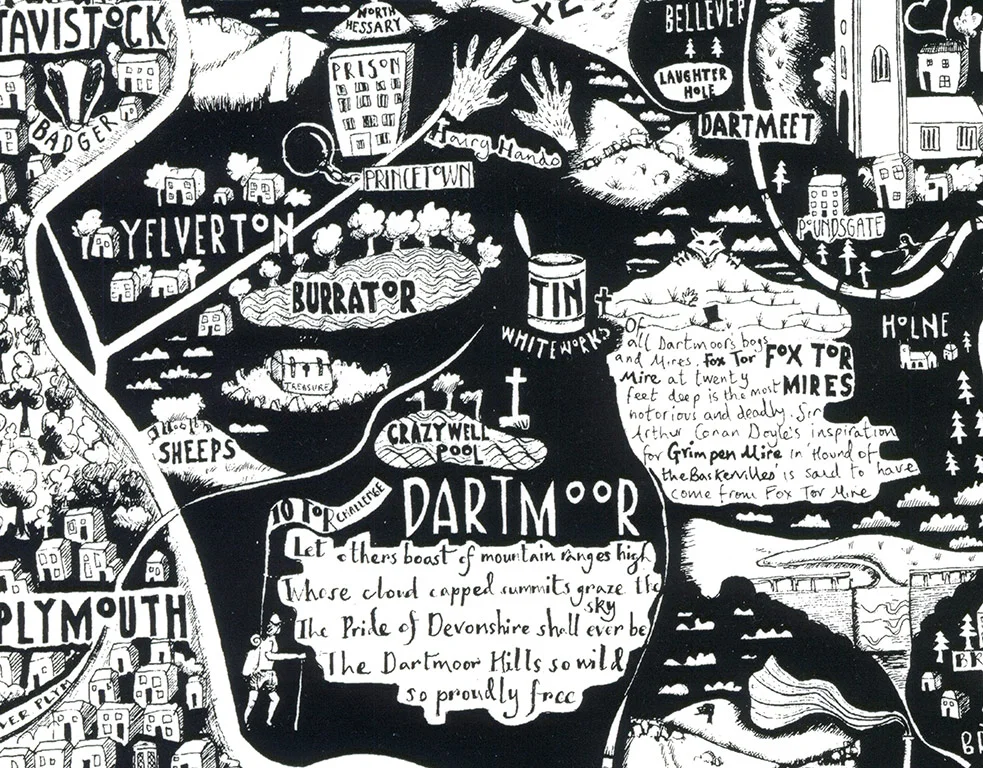 TAVISTOCK
BADGER
NORTH
HESSARY
PRISON
Hairy Hands
PRINCETOWN
BELLEVER
LAUGHTER
HOLE
DARTMEET
POUNDSGATE
HOLNE
YELVERTON
BURRATOR
TREASURE
SHEEPS
TIN
WHITEWORKS
CRAZYWELL
POOL
Of
all Dartmoor's bogs
and Mires, Fox Tor
Mire at twenty
feet deep is the most
notorious and deadly. Sir
Arthur Conan Doyle's inspiration
for Grimpen Mire in 'Hound of
the Baskervilles' is said to have
come from Fox Tor Mire
FOX TOR
MIRES
10 TOR CHALLENGE
DARTMOOR
Let others boast of mountain ranges high
Whose cloud capped summits graze the
sky
The Pride of Devonshire shall ever be
The Dartmoor Hills so wild
so proudly free
PLYMOUTH